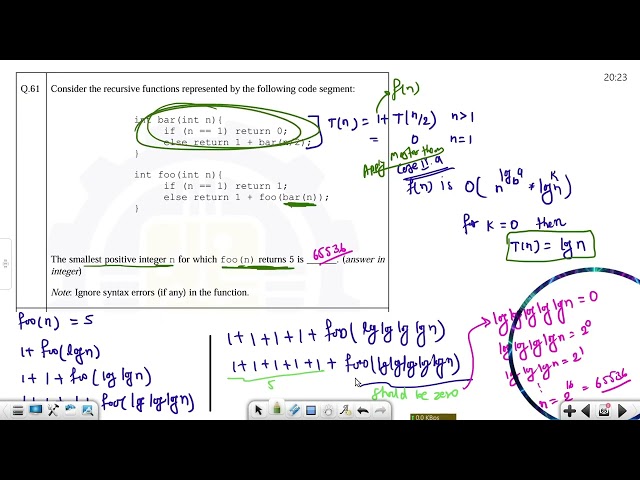 20:23
Q.61 Consider the recursive functions represented by the following code segment:
int bar(int n){
if (n == 1) return 0;
else return 1 + bar(n/2);
}
int foo(int n){
if (n == 1) return 1;
else return 1 + foo(bar(n));
}
The smallest positive integer n for which foo(n) returns 5 is 65536. (answer in
integer)
Note: Ignore syntax errors (if any) in the function.
f(n)
T(n) = 1 + T(n/2) n>1
= 0 n=1
Apply Master thm
case II.a
f(n) is O(n^log_b a * log^k n)
for K = 0 then
T(n) = log n
foo(n) = 5
1 + foo(logn)
1 + 1 + foo(lglgn)
foo(lglglgn)
1 + 1 + 1 + 1 + foo(lglglglgn)
1 + 1 + 1 + 1 + 1 + foo(lglglglglgn)
5
should be zero
loglogloglog logn = 0
lglglg logn = 2^0
lglg logn = 2^1
⋮
n = 2^16 = 65536
0.0 KBps